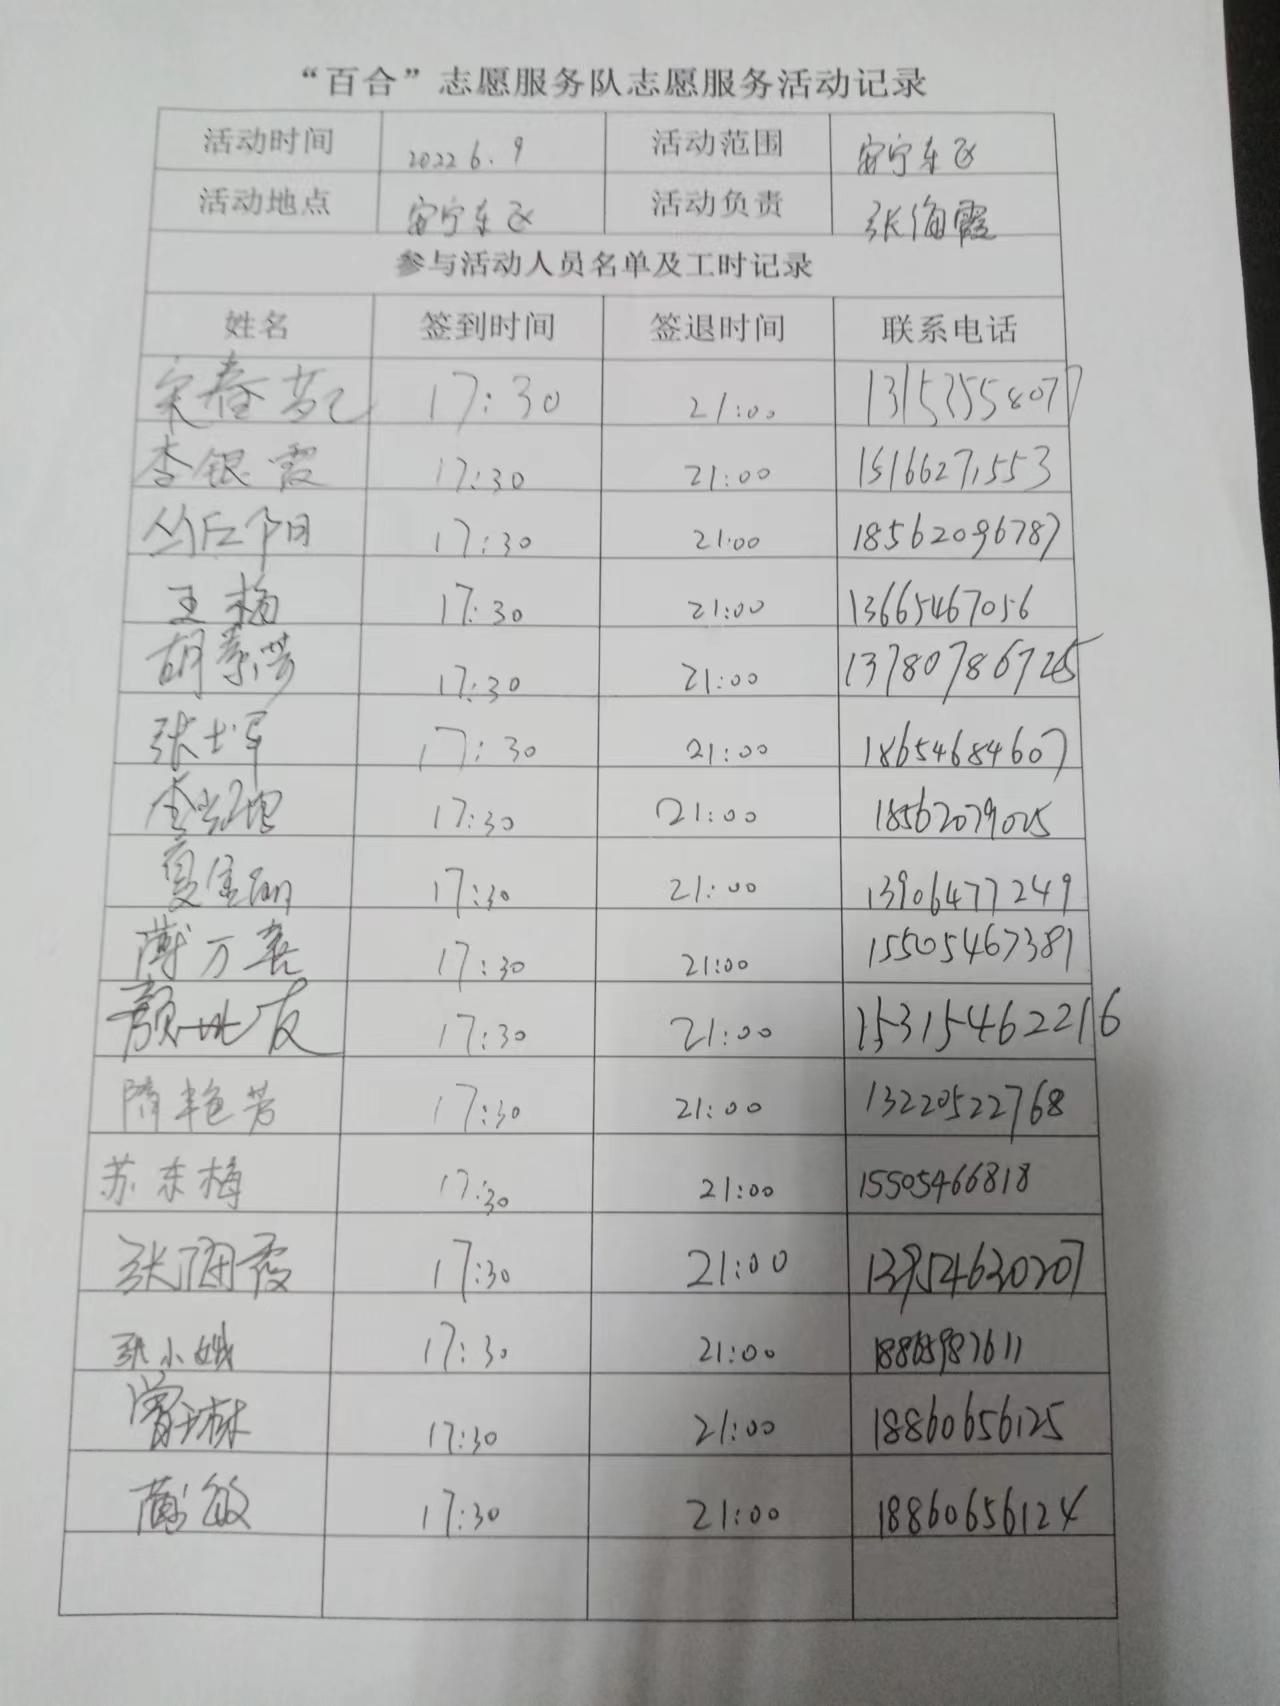 “百合”志愿服务队志愿服务活动记录
活动时间 2022 6.9 活动范围 安宁东区
活动地点 安宁东区 活动负责 张海霞
参与活动人员名单及工时记录
姓名 签到时间 签退时间 联系电话
17:30 21:00
李银霞 17:30 21:00 15166271553
17:30 21:00 18562096787
王梅 17:30 21:00 13665467056
胡 17:30 21:00
张士军 17:30 21:00 18654684607
17:30 21:00 18562079025
17:30 21:00 13906477249
薄万喜 17:30 21:00 15505467381
颜 友 17:30 21:00 15315462216
隋艳芳 17:30 21:00 13220522768
苏东梅 17:30 21:00 15505466818
张海霞 17:30 21:00 13954630207
张小娥 17:30 21:00
曾 琳 17:30 21:00 18860656125
敏 17:30 21:00 18860656124